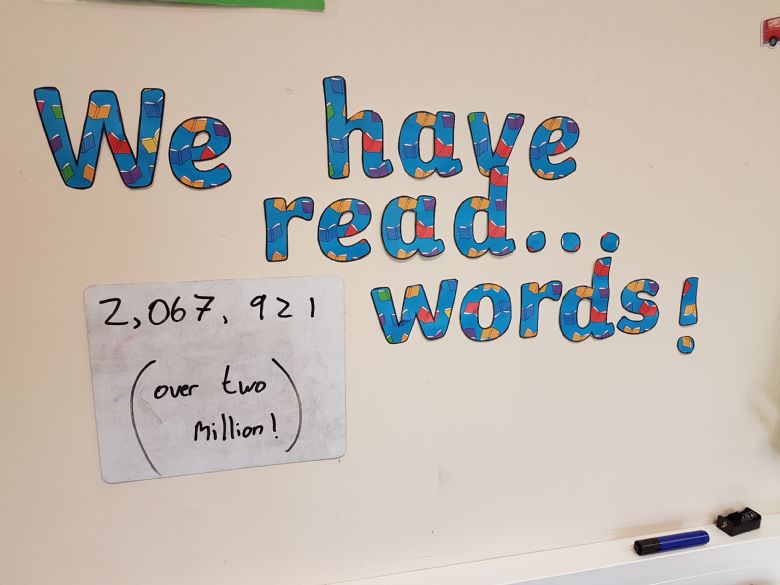 We have
read...
2,067,921
words!
(over two
Million!)